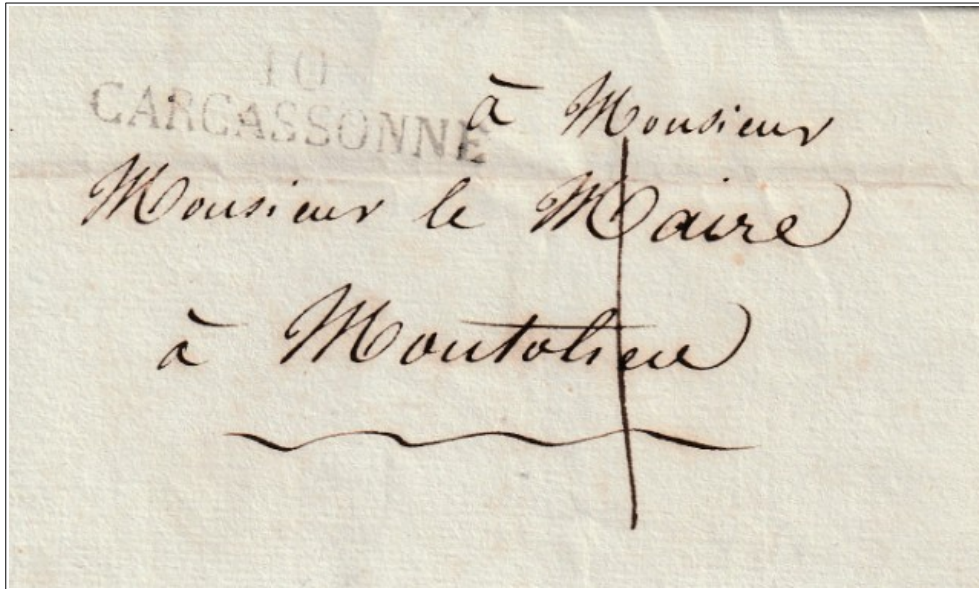 10
CARCASSONNE
à Monsieur
Monsieur le Maire
à Montolieu